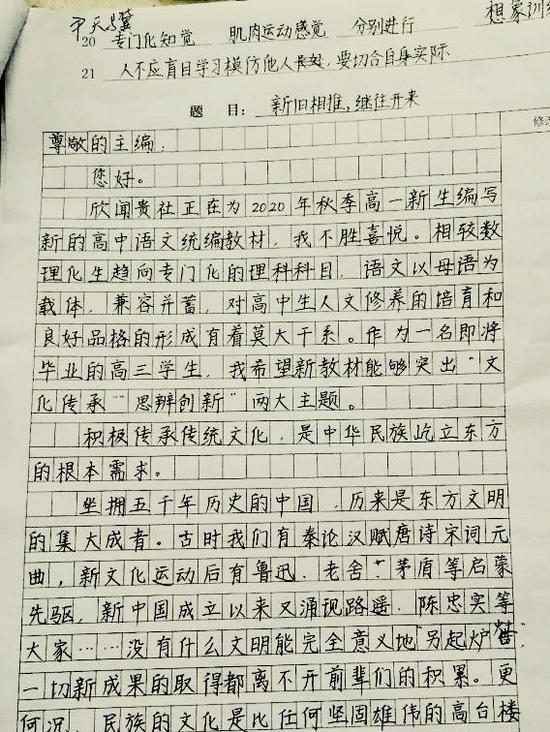 20 专门化知觉 肌肉运动感觉 分别进行 想象训
21 人不应盲目学习模仿他人长处,要切合自身实际
题 目: 新旧相推,继往开来
尊敬的主编:
您好。
欣闻贵社正在为2020年秋季高一新生编写
新的高中语文统编教材,我不胜喜悦。相较数
理化生趋向专门化的理科科目,语文以母语为
载体,兼容并蓄,对高中生人文修养的培育和
良好品格的形成有着莫大干系。作为一名即将
毕业的高三学生,我希望新教材能够突出“文
化传承”“思辨创新”两大主题。
积极传承传统文化,是中华民族屹立东方
的根本需求。
坐拥五千年历史的中国,历来是东方文明
的集大成者。古时我们有秦论汉赋唐诗宋词元
曲,新文化运动后有鲁迅、老舍、茅盾等启蒙
先驱,新中国成立以来又涌现路遥、陈忠实等
大家……没有什么文明能完全意义地“另起炉灶”,
一切新成果的取得都离不开前辈们的积累。更
何况,民族的文化是比任何坚固雄伟的高台楼